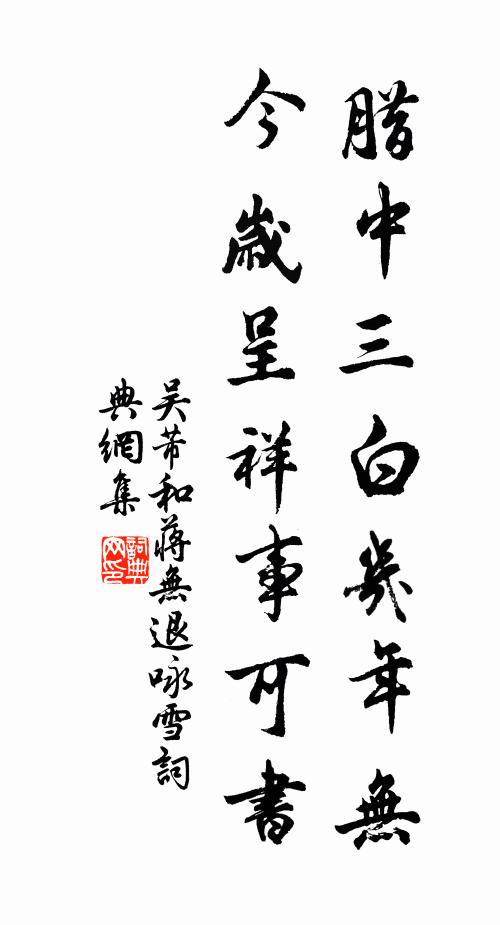 腊中三白幾年無
今歲呈祥事可書
吴芾和蔣無退咏雪詞
典網集
詞典
网印